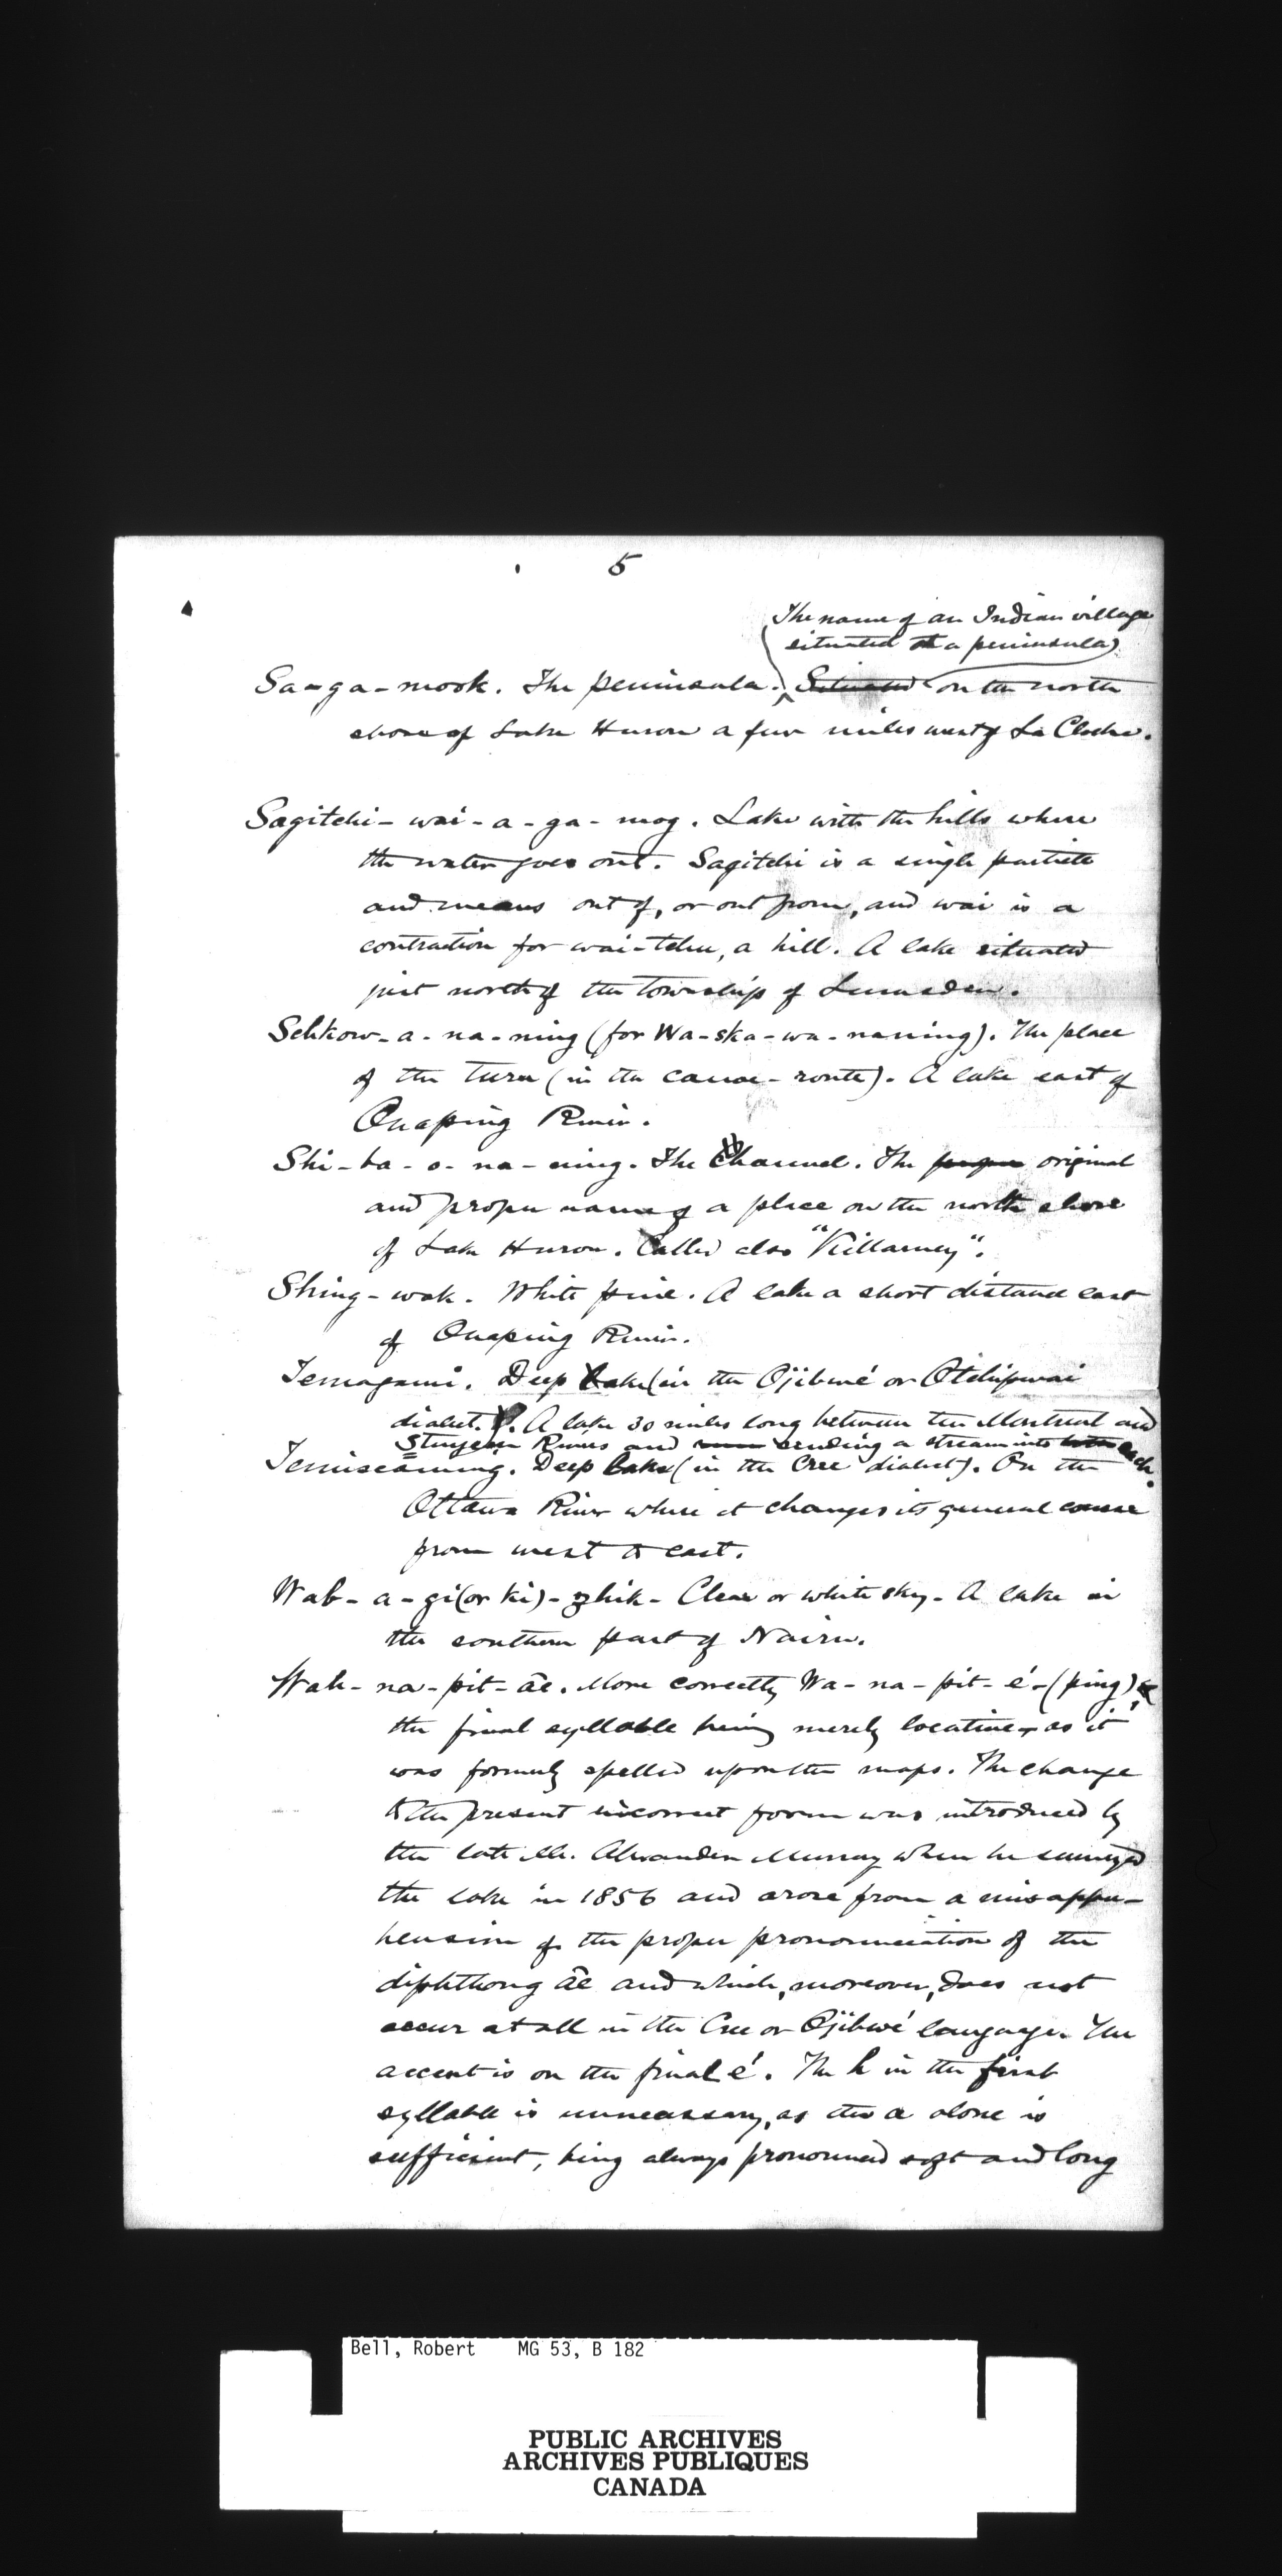 5
The name of an Indian village
situated at a peninsula)
Sa-ga-mook. The peninsula. Situated on the north
shore of Lake Huron a few miles west of La Cloche.
Sagitchi-wai-a-ga-mog. Lake with the hills where
the water goes out. Sagitchi is a single particle
and means out of, or out from, and wai is a
contraction for wai-tchu, a hill. A lake situated
just north of the Township of Lumsden.
Schkow-a-na-ning (for Wa-ska-wa-naning). The place
of the turn (in the canoe-route). A lake east of
Onaping River.
Shi-ba-o-na-ning. The Channel. The proper original
and proper name of a place on the north shore
of Lake Huron. Called also "Killarney".
Shing-wak. White pine. A lake a short distance east
of Onaping River.
Temagami. Deep Lake (in the Ojibwé or Otchipwai
dialect. A lake 30 miles long between the Montreal and
Sturgeon Rivers and sending a stream into both each.
Temiscaming. Deep lake (in the Cree dialect). On the
Ottawa River where it changes its general course
from west to east.
Wab-a-gi(or ki)-zhik- Clear or white sky. A lake in
the southern part of Nairn.
Wah-na-pit-æ. More correctly Wa-na-pit-é-(ping),
the final syllable being merely locative, as it
was formerly spelled upon the maps. The change
to the present incorrect form was introduced by
the late Mr. Alexander Murray when he surveyed
the lake in 1856 and arose from a misappre-
hension of the proper pronounciation of the
diphthong æ and which, moreover, does not
occur at all in the Cree or Ojibwé languages. The
accent is on the final é. The h in the first
syllable is unnecessary, as the a alone is
sufficient, being always pronounced soft and long
Bell, Robert MG 53, B 182
PUBLIC ARCHIVES
ARCHIVES PUBLIQUES
CANADA